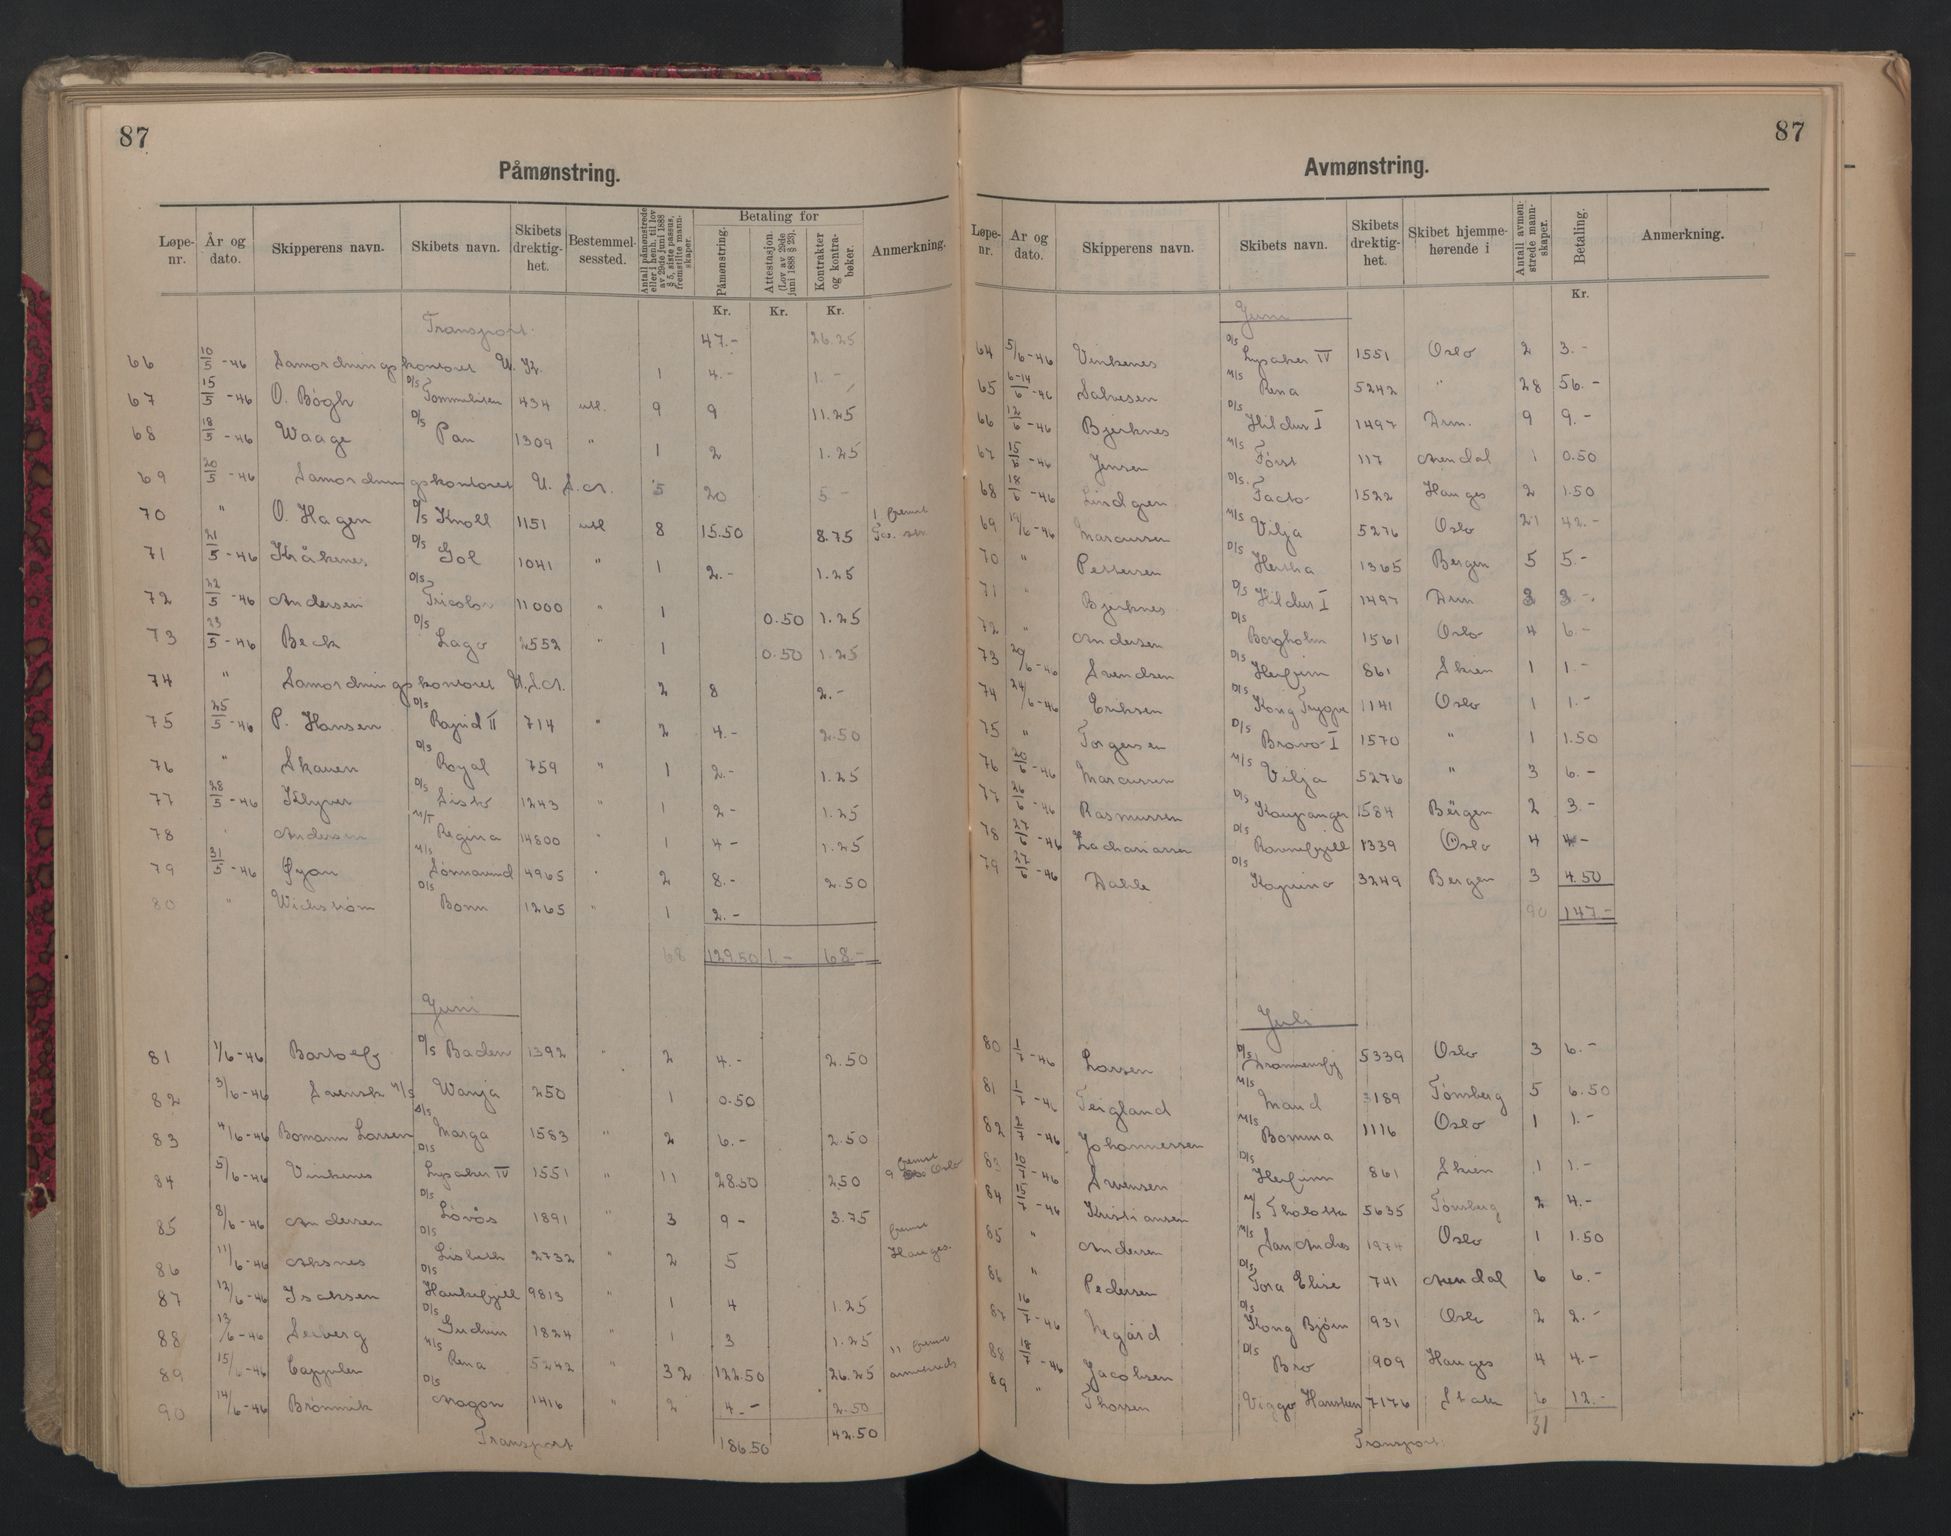 87
Påmønstring.
Løpe-nr. År og dato. Skipperens navn. Skibets navn. Skibets drektig-het. Bestemmel-sessted. Antall påmønstrede eller i henh. til lov av 29de juni 1888 § 5, siste passus, fremstilte mann-skaper. Betaling for Påmønstring. Attestasjon (Lov av 29de juni 1888 § 23). Kontrakter og kontra-bøker. Anmerkning.
Kr. Kr. Kr.
Transport. 47.- 26.25
66 10/5-46 Samordningskontoret U. K. 1 4.- 1.-
67 15/5-46 O. Bøgh D/S Tommeliten 434 utl. 9 9 11.25
68 18/5-46 Waage D/S Pan 1309 " 1 2 1.25
69 20/5-46 Samordningskontoret U. S. A. 5 20 5-
70 " O. Hagen D/S Knoll 1151 utl 8 15.50 8.75 1 fremst
71 21/5-46 Kråkenes D/S Gol 1041 " 1 2.- 1.25
72 22/5-46 Andersen D/S Tricolor 11000 " 1 0.50 1.25
73 23/5-46 Beck D/S Lago 2552 " 1 0.50 1.25
74 " Samordningskontoret U.S.A. 2 8 2.-
75 25/5-46 P. Hansen D/S Ragnid II 714 " 2 4.- 2.50
76 " Skauen D/S Royal 759 " 1 2.- 1.25
77 28/5-46 Klyver D/S Sisto 1243 " 1 2- 1.25
78 " Andersen M/T Regina 14800 " 1 4- 1.25
79 31/5-46 Øyan M/S Sønnavind 4965 " 2 8.- 2.50
80 " Wickstrøm D/S Bonn 1265 " 1 2.-
68 129.50 1.- 68.-
Juni
81 1/6-46 D/S Baden 1392 " 2 4.- 2.50
82 3/6-46 Svensk M/S Wanja 250 1 0.50
83 4/6-46 Bomann Larsen D/S Marga 1583 " 2 6.- 2.50
84 5/6-46 Vinkenes D/S Lysaker IV 1551 " 11 28.50 250 9 fremst Oslo
85 8/6-46 Andersen D/S Lovås 1891 " 3 9- 3.75
86 11/6-46 Aksnes D/S Lisbeth 2732 " 2 5 fremst Hauges.
87 12/6-46 Isaksen D/S Haukefjell 9813 " 1 4 1.25
88 13/6-46 Seeberg D/S Gudvin 1824 " 1 3 1.25
89 15/6-46 Cappelen M/S Rena 5242 " 32 122.50 26.25 11 fremst
90 14/6-46 Brønmik D/S Aragon 1416 " 2 4.- 2.50
Transport 186.50 42.50
87
Avmønstring.
Løpe-nr. Ar og dato. Skipperens navn. Skibets navn. Skibets drektig-het. Skibet hjemme-hørende i Antall avmøn-strede mann-skaper. Betaling. Anmerkning.
Kr.
Juni
64 5/6-46 Vinkenes D/S Lysaker IV 1551 Oslo 2 3.-
65 6-14/6-46 Salvesen M/S Rena 5242 " 28 56.-
66 12/6-46 Bjerknes D/S Hildur I 1497 Drm. 9 9.-
67 15/6-46 Jensen M/S Først 117 Arendal 1 0.50
68 18/6-46 Lindgren D/S. Facto 1522 Hauges 2 1.50
69 19/6-46 Marcussen M/S Vilja 5276 Oslo 21 42.-
70 " Pettersen D/S Hertha 1365 Bergen 5 5.-
71 " Bjerknes D/S Hildur I 1497 Drm 3 3.-
72 " Andersen D/S Borgholm 1561 Oslo 4 6.-
73 20/6-46 Svendsen D/S Herfinn 861 Skien 1 1.-
74 24/6-46 Eriksen D/S Kong Trygve 1141 Oslo 1 1.-
75 " Torgersen D/S Bravo I 1570 " 1 1.50
76 25/6-46 Marcussen M/S Vilja 5276 " 3 6.-
77 26/6-46 Rasmussen D/S Kaupanger 1584 Bergen 2 3.-
78 27/6-46 Zachariassen D/S Ravnefjell 1339 Oslo 4 4-
79 27/6-46 Dahle D/S Kagnino 3249 Bergen 3 4.50
90 147-
Juli
80 1/7-46 Larsen D/S Drammensfj 5339 Oslo 3 6.-
81 1/7-46 Teigland M/S Maud 3189 Tønsberg 5 6.50
82 2/7-46 Johannessen M/S Bomma 1116 Oslo 1 1.-
83 10/7-46 Svensen D/S Herfinn 861 Skien 1 1.-
84 12/7-46 Kristiansen M/S Tholotta 5635 Tønsberg 2 4.-
85 " Andersen M/S San Andres 1974 Oslo 1 1.50
86 " Pedersen D/S Tora Elise 741 Arendal 6 6.-
87 16/7-46 Negård D/S Kong Bjørn 931 Oslo 2 2.-
88 18/7-46 Jacobsen D/S Bro 909 Hauges 4 4.-
89 " Thorsen Viggo Hansteen 7176 Staten 6 12.-
31
Transport.